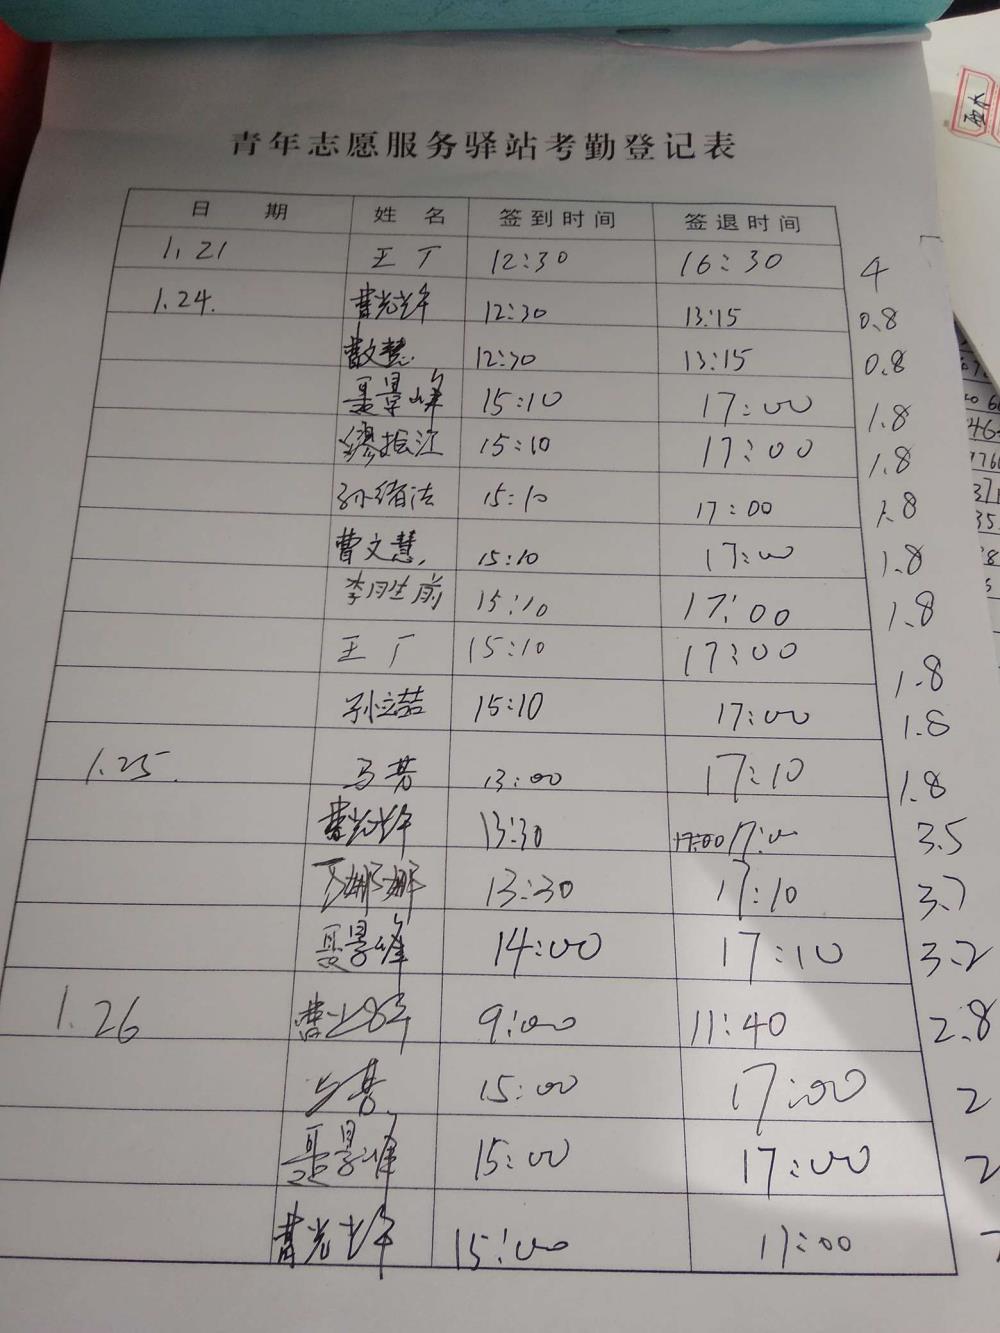 青年志愿服务驿站考勤登记表
日 期 姓 名 签到时间 签退时间
1.21 王丁 12:30 16:30 4
1.24. 12:30 13:15 0.8
12:30 13:15 0.8
聂景峰 15:10 17:00 1.8
缪振江 15:10 17:00 1.8
孙绪法 15:10 17:00 1.8
曹文慧. 15:10 17:00 1.8
李胜前 15:10 17:00 1.8
王丁 15:10 17:00 1.8
孙立喆 15:10 17:00 1.8
1.25. 马芳 13:00 17:10 1.8
13:30 17:00 17:00 3.5
13:30 17:10 3.7
聂景峰 14:00 17:10 3.2
1.26 9:00 11:40 2.8
15:00 17:00 2
聂景峰 15:00 17:00 2
15:00 17:00